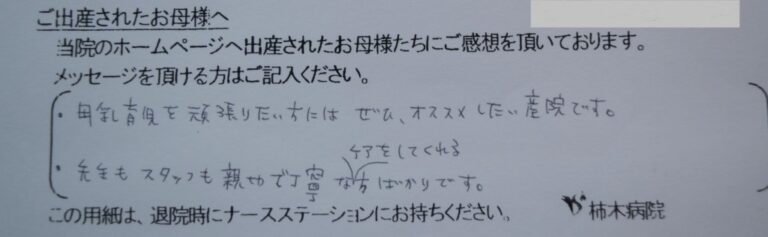 ご出産されたお母様へ
当院のホームページへ出産されたお母様たちにご感想を頂いております。
メッセージを頂ける方はご記入ください。
・母乳育児を頑張りたい方には ぜひ、オススメしたい産院です。
ケアをしてくれる
・先生もスタッフも親切で丁寧な方ばかりです。
この用紙は、退院時にナースステーションにお持ちください。 柿木病院